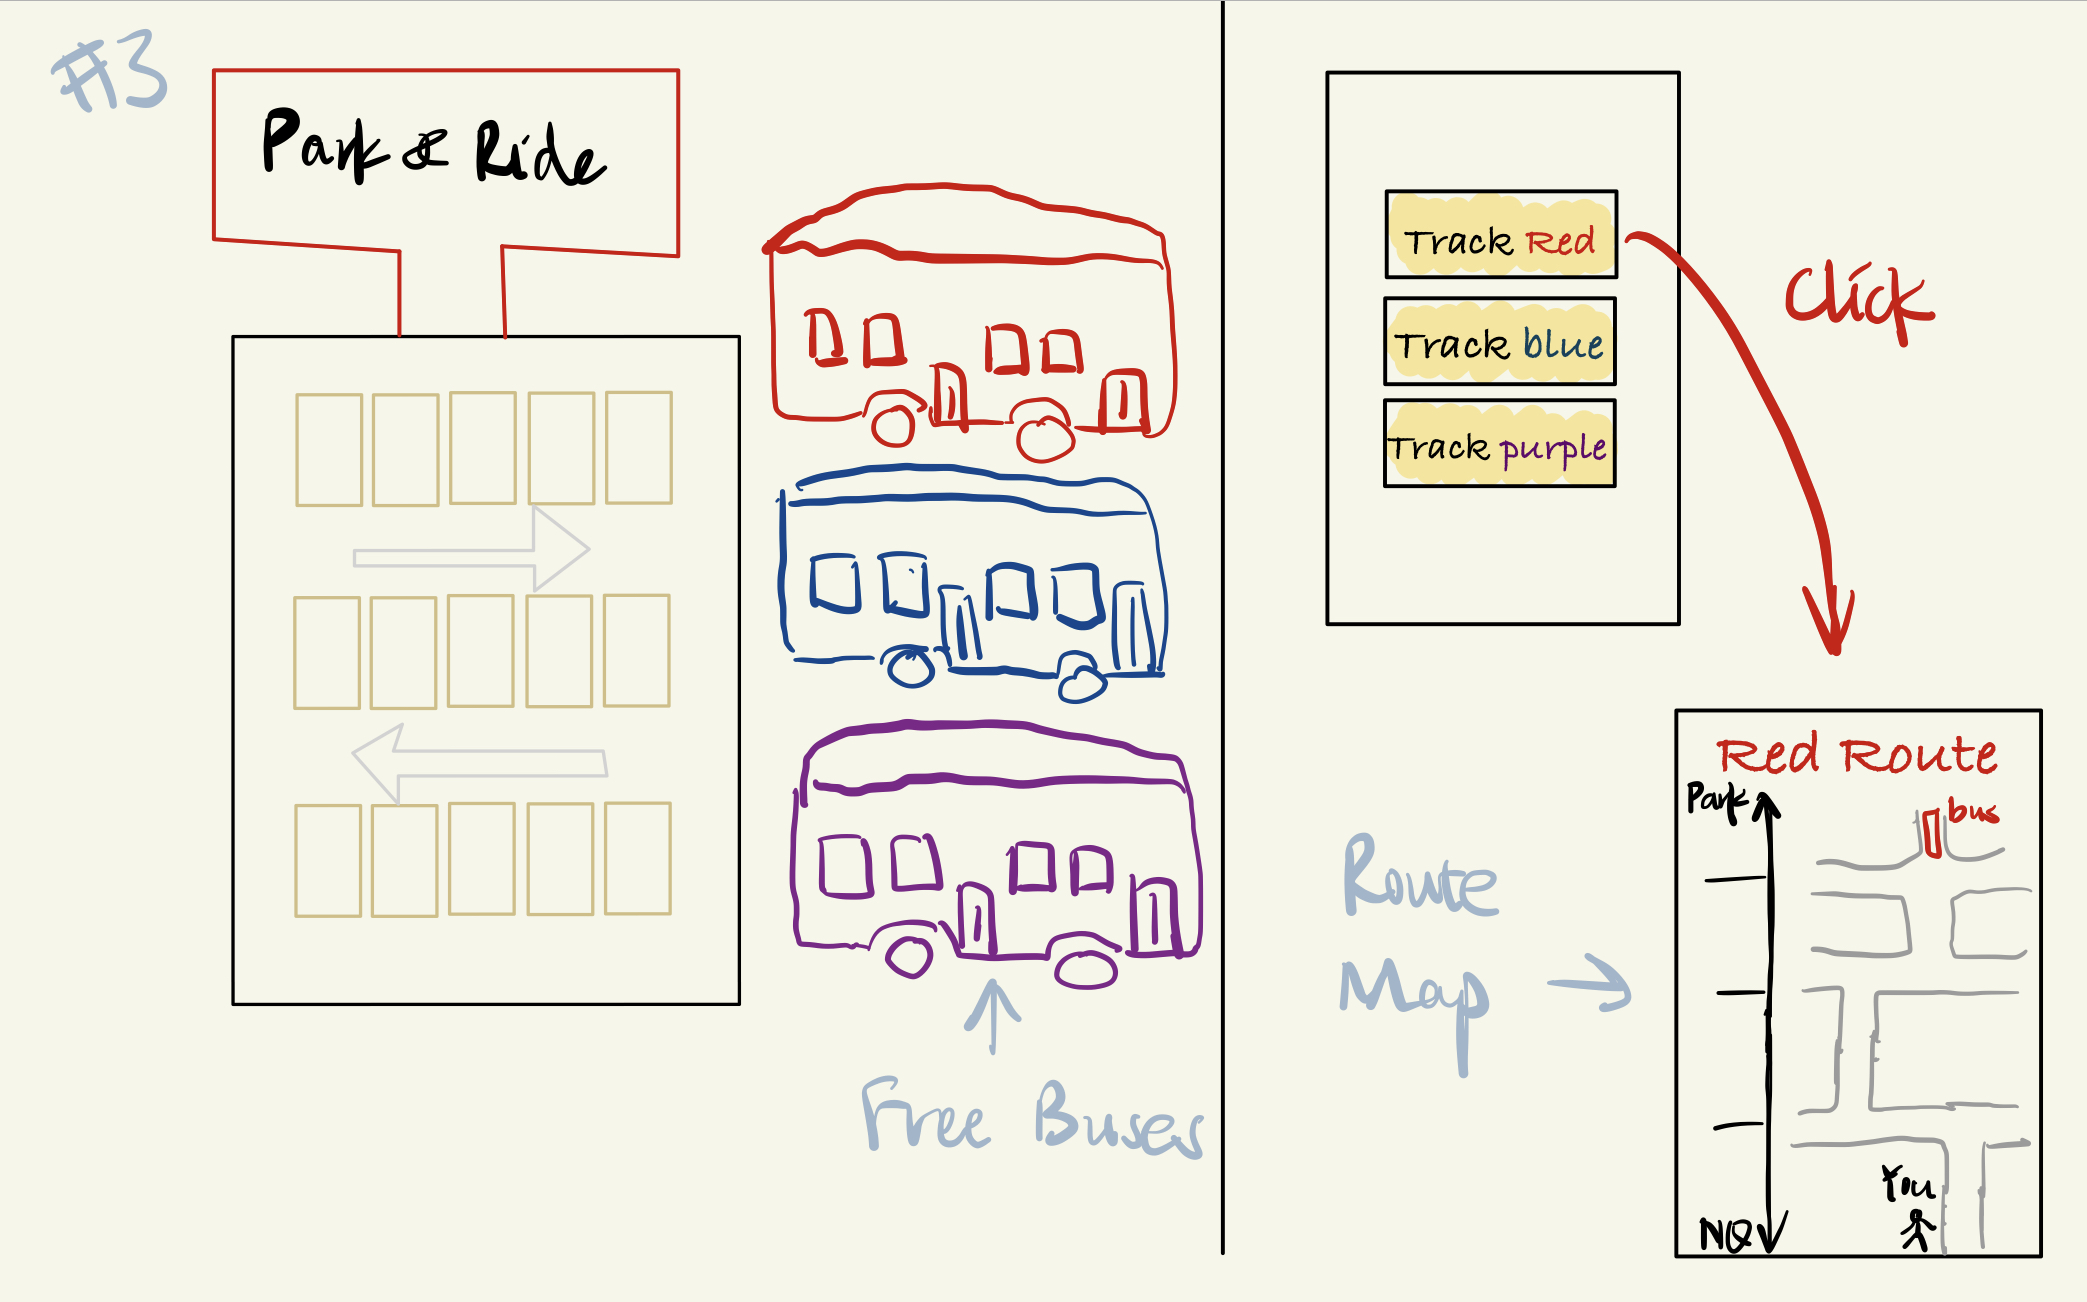 #3
Park & Ride
Free Buses
Track Red
Track blue
Track purple
Click
Route
Map
Red Route
Park
bus
You
NQ